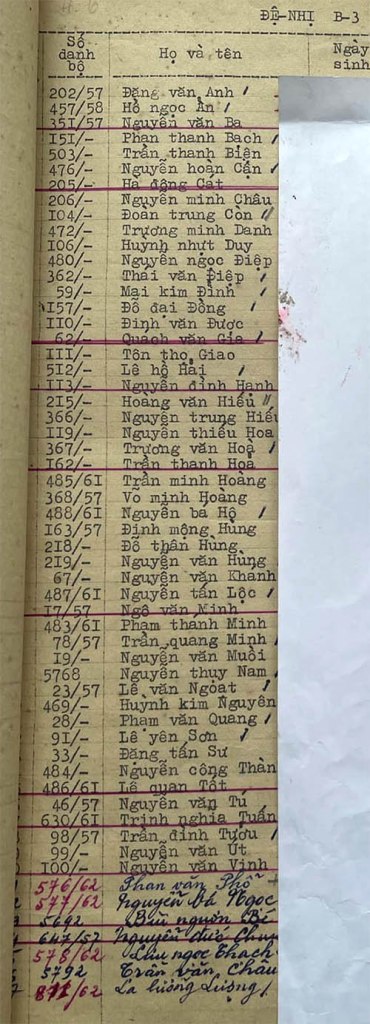 ĐỆ-NHỊ B-3
Số danh bộ Họ và tên Ngày sinh
202/57 Đặng văn Anh
457/58 Hồ ngọc Ẩn
351/57 Nguyễn văn Ba
I5I/- Phan thanh Bạch
503/- Trần thanh Biện
476/- Nguyễn hoàn Cận
205/- Hà đông Cát
206/- Nguyễn minh Châu
I04/- Đoàn trung Còn
472/- Trương minh Danh
I06/- Huỳnh nhựt Duy
480/- Nguyễn ngọc Điệp
362/- Thái văn Điệp
59/- Mai kim Đình
I57/- Đỗ đại Đồng
II0/- Đinh văn Được
62/- Quách văn Gia
III/- Tôn thọ Giao
5I2/- Lê hồ Hải
II3/- Nguyễn đình Hạnh
2I5/- Hoàng văn Hiếu
366/- Nguyễn trung Hiếu
II9/- Nguyễn thiếu Hoa
367/- Trương văn Hoà
I62/- Trần thanh Hòa
485/6I Trần minh Hoàng
368/57 Võ minh Hoàng
488/6I Nguyễn bá Hộ
I63/57 Đinh mộng Hùng
2I8/- Đỗ thân Hùng
2I9/- Nguyễn văn Hùng
67/- Nguyễn văn Khanh
487/6I Nguyễn tấn Lộc
I7/57 Ngô văn Minh
483/6I Phạm thanh Minh
78/57 Trần quang Minh
I9/- Nguyễn văn Muôi
5768 Nguyễn thụy Nam
23/57 Lê văn Ngoạt
469/- Huỳnh kim Nguyên
28/- Phạm văn Quang
9I/- Lê yên Sơn
33/- Đặng tấn Sư
484/- Nguyễn công Thàn
486/6I Lê quan Tốt
46/57 Nguyễn văn Tú
630/6I Trịnh nghĩa Tuấn
98/57 Trần đình Tựu
99/- Nguyễn văn Út
I00/- Nguyễn văn Vinh
576/62 Phan văn Phố
577/62 Nguyễn bá Ngọc
5692 Bửu nguơn Bé
647/57 Nguyễn đức
578/62 Lưu ngọc Thạch
5792 Trần văn Châu
/62 La lương Lượng